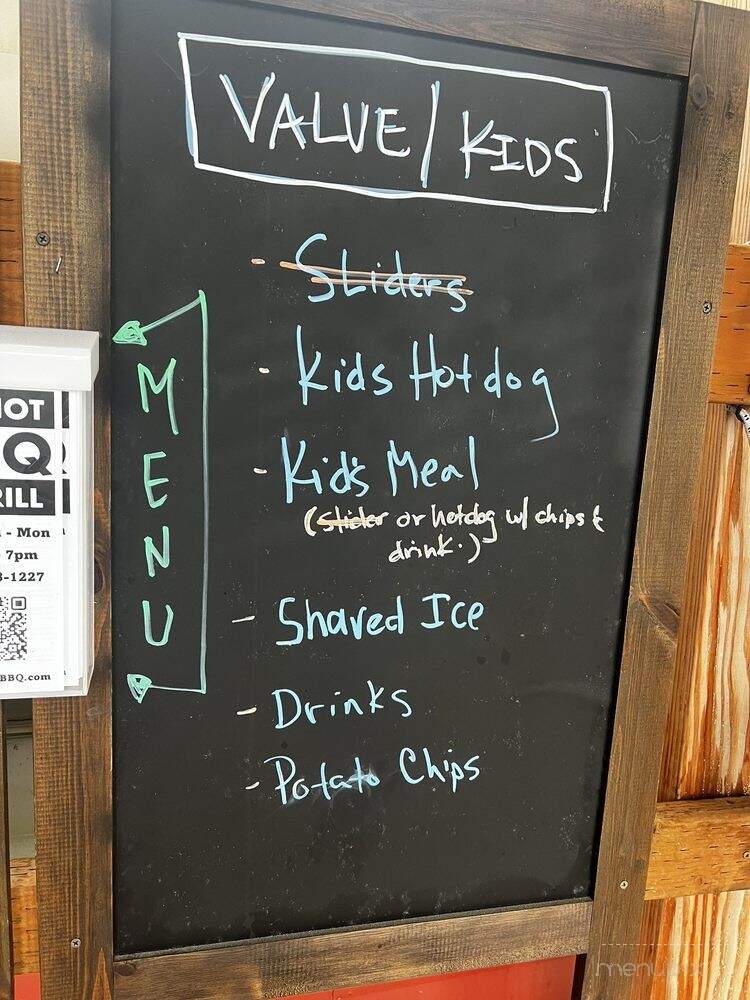 VALUE/KIDS
- Sliders
- Kids Hotdog
- Kid's Meal
(slider or hotdog w/ chips &
drink.)
- Shaved Ice
- Drinks
- Potato Chips
MENU
OT
Q
ILL
- Mon
7pm
3-1227
BBQ.com